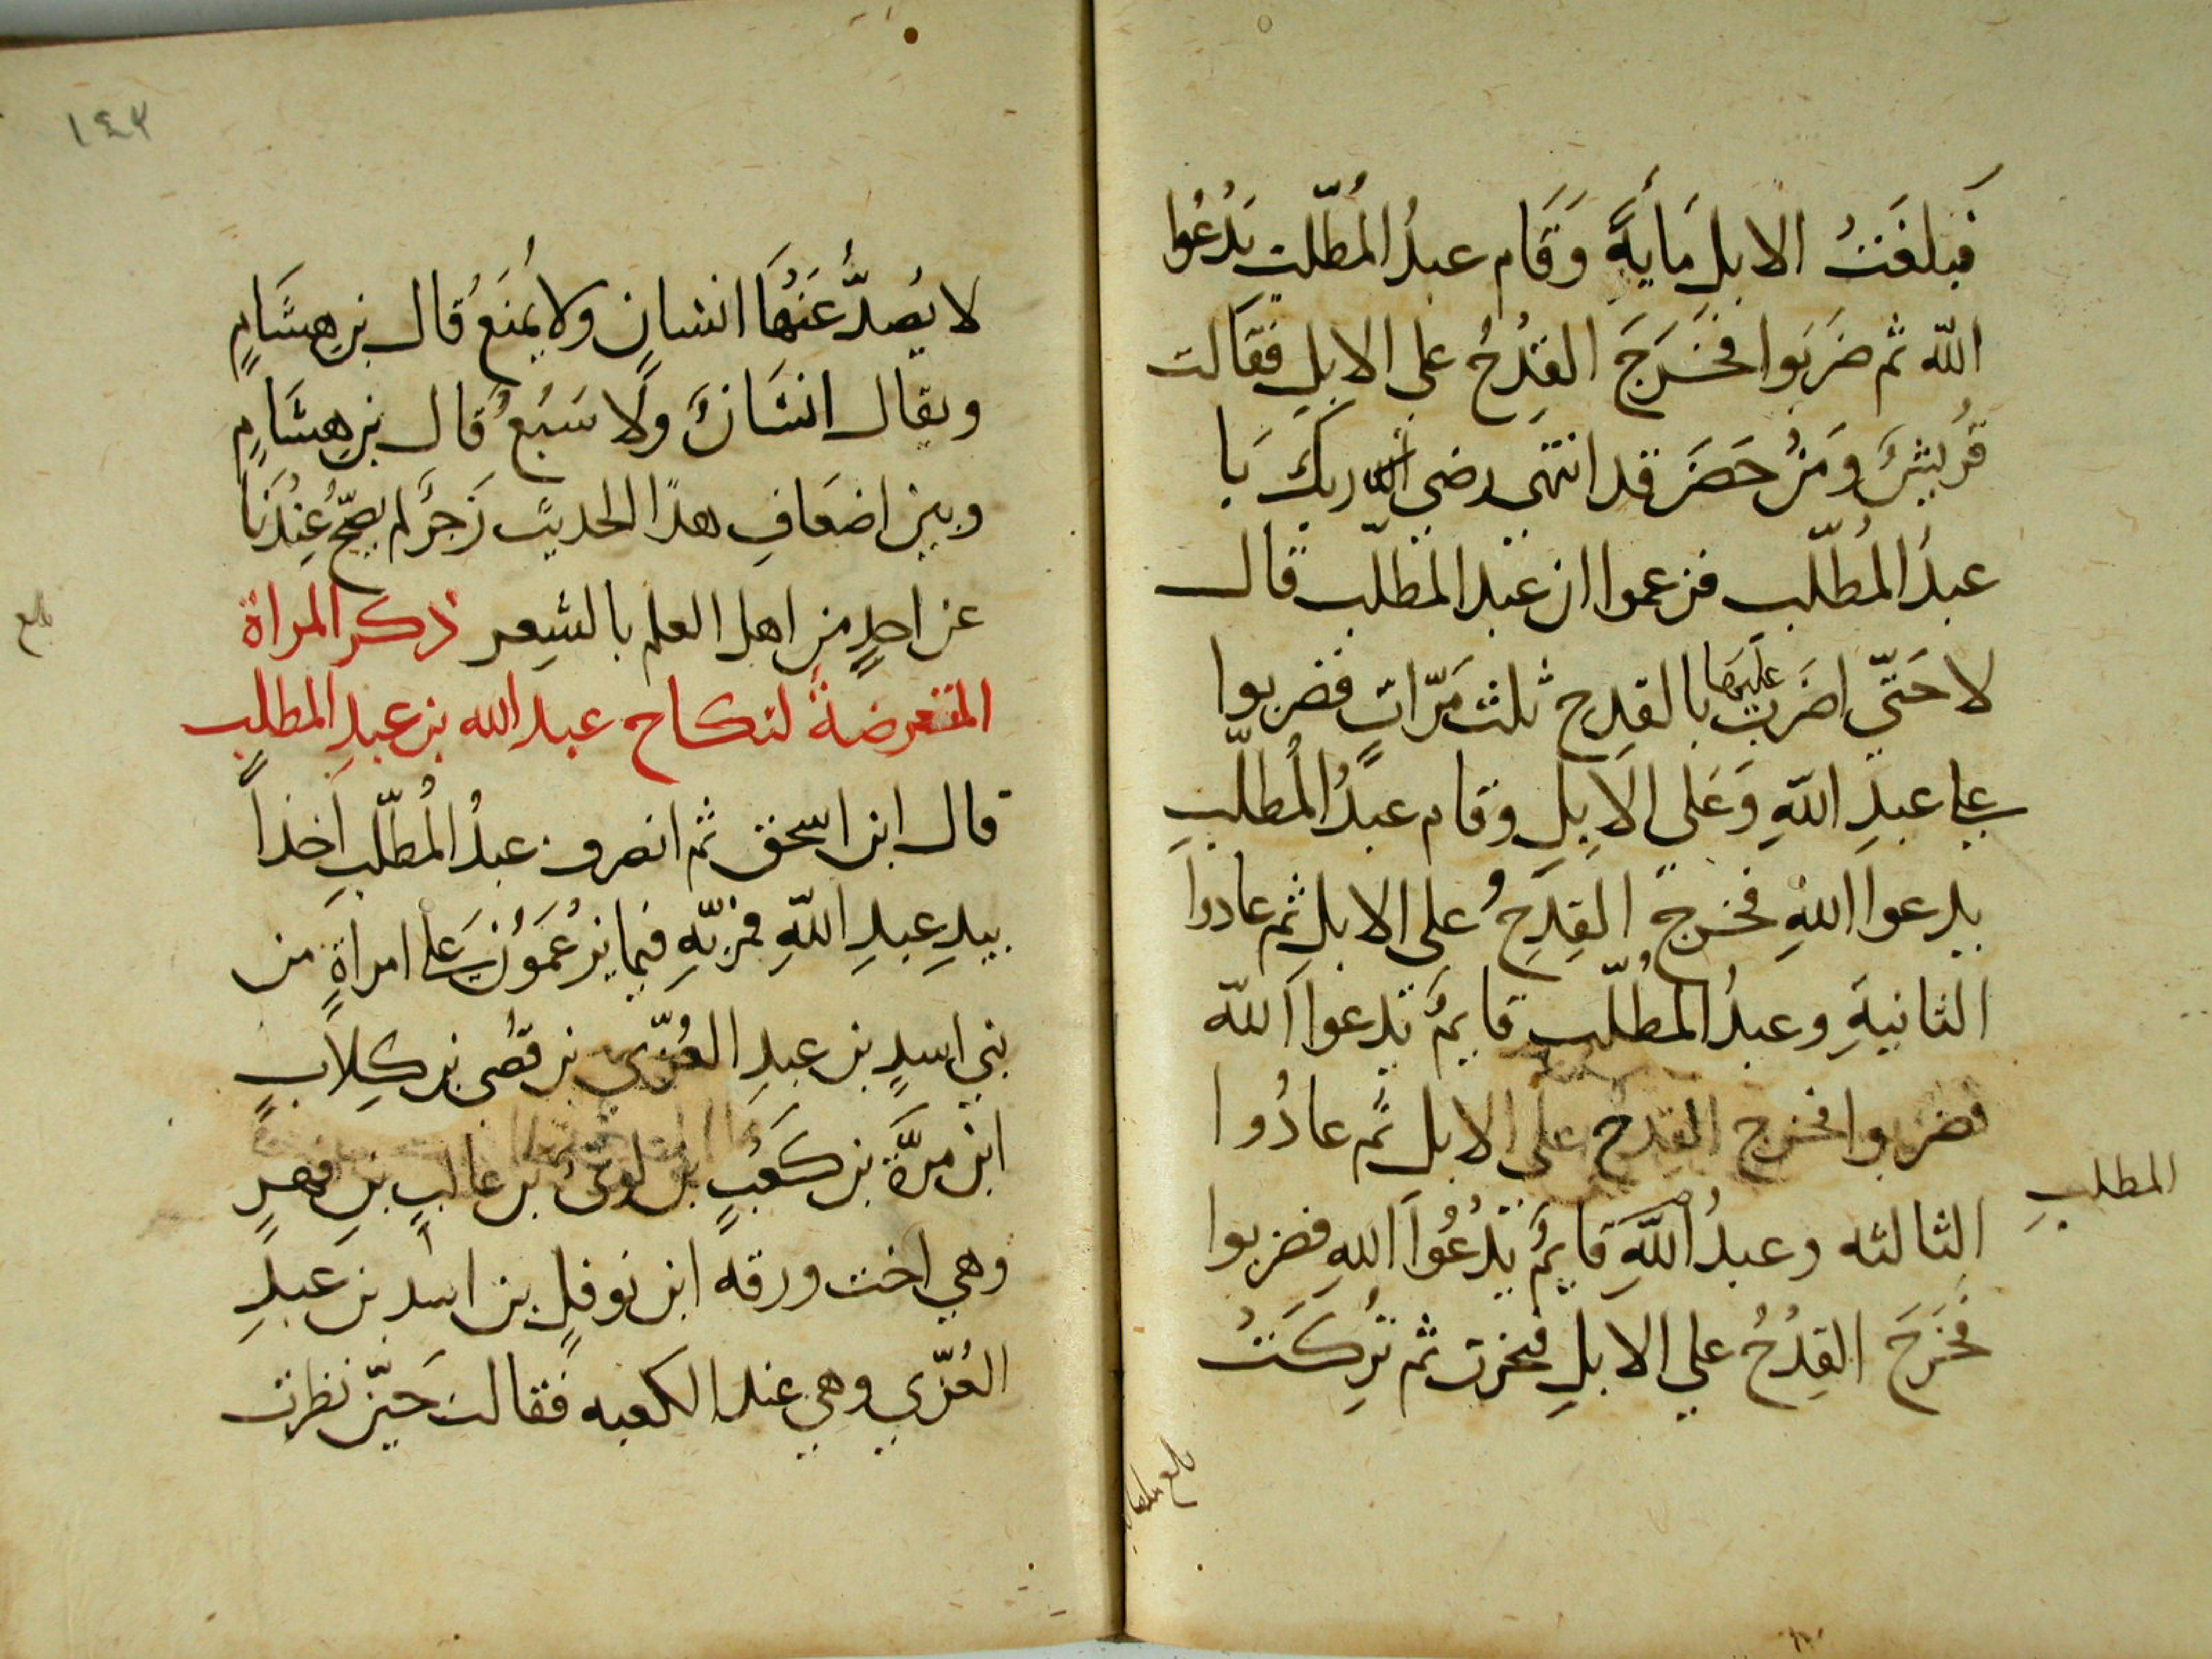 فبلغت الابل مايةً وَقَام عبدُ المُطّلب يَدْعُوا
الله ثم ضَرَبوا فخَرَجَ القِدْحُ على الابلِ فقالت
قُريشٌ وَمَنْ حَضَرَ قد انتهى رضى ربك يَا
عبدُ المُطّلب فزعموا ان عبد المطلب قال
لا حَتّى اضرب عليهَا بالقِدح ثلث مَرّاتٍ فضربوا
على عبدِ اللهِ وَعَلى الابِلِ وقام عبدُ المُطلّبِ
يدعوا اللهَ فخرجَ القِدحُ على الابل ثم عادوا
الثانيةِ وعبدُ المُطّلب قايمٌ يدعوا الله
فضربوا فخرج القِدح على الابل ثم عادُوا
الثالثه وعبدُ اللهِ قايمٌ يَدْعُوا اللهِ فضربوا
المطلبِ
فخَرَجَ القِدْحُ على الابلِ فنحرت ثم تُرِكَتْ
بلغ مقابلة
١٤٣
لا يُصدُّ عَنهَا انسان ولا يُمنَعُ قال بن هِشَامٍ
ويقال انسَانٌ ولا سَبُعٌ قال بن هِشَامٍ
وبين اضعَافِ هذا الحديث رَجزٌ لم يصحّ عِنْدَنَا
عن احدٍ من اهل العلم بالشِعر ذكر المراة
المتعرضة لنكاح عبد الله بن عبدِ المطلب
بلغ
قال ابن اسحق ثم انصرف عبدُ المُطّلبِ اخذاً
بيدِ عبدِ اللهِ فمرّ بِهِ فيما يَزعُمَوُن على امراةٍ من
بني اسدِ بن عبدِ العُزّي بن قُصى بن كِلابٍ
ابن مرّة بن كَعْبِ بن لوىّ بن غالبِ بنِ فهرٍ
وهي اخت ورقه ابن نوفلِ بن اسد بن عبدِ
العُزّي وهي عند الكعبه فقالت حَينَ نظرت